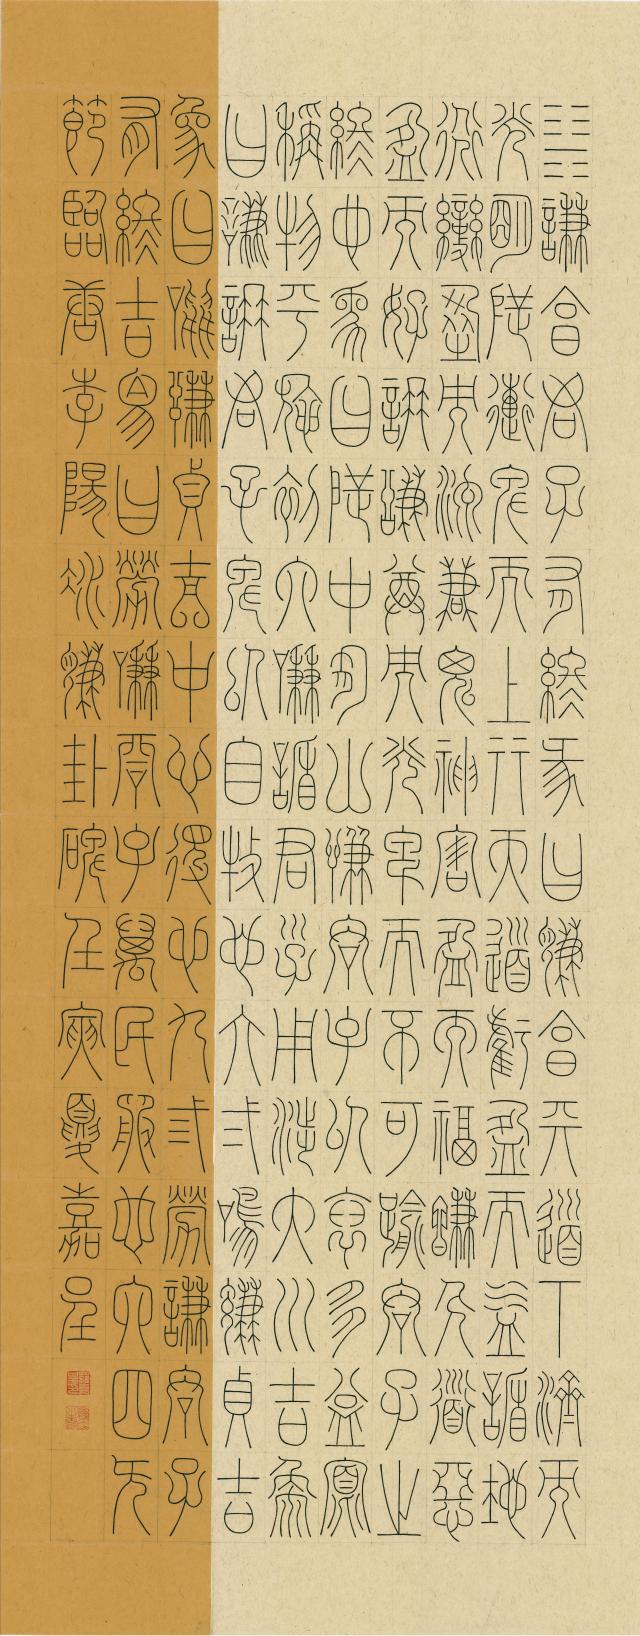 ䷎謙亨君子有終彖曰謙亨天道下濟而
光明地道卑而上行天道虧盈而益謙地
道變盈而流謙鬼神害盈而福謙人道惡
盈而好謙謙尊而光卑而不可踰君子之
終也象曰地中有山謙君子以裒多益寡
稱物平施初六謙謙君子用涉大川吉象
曰謙謙君子卑以自牧也六二鳴謙貞吉
象曰鳴謙貞吉中心得也九三勞謙君子
有終吉象曰勞謙君子萬民服也六四无
節臨唐李陽冰謙卦碑壬寅夏嘉呈